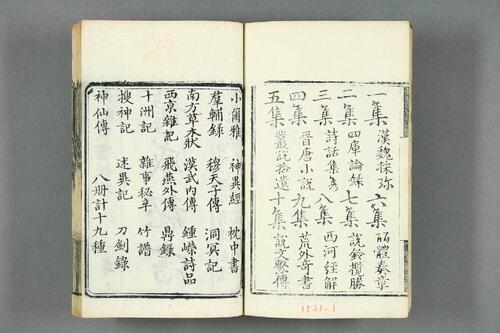 一集 漢魏採珍 六集 體奏章
二集 四庫論錄 七集 說鈴攬勝
三集 詩話集雋 八集 西河經解
四集 晉唐小說 九集 荒外奇書
五集 叢說拾遺 十集 說文繫傳
1521-1
小爾雅 神異經 枕中書
羣輔錄 穆天子傳 洞冥記
南方草木狀 漢武內傳 鍾嶸詩品
西京雜記 飛燕外傳 鼎錄
十洲記 雜事秘辛 竹譜
搜神記 述異記 刀劍錄
神仙傳 八册計十九種